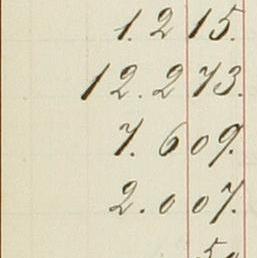 1.215.
12.273.
7.609.
2.007.